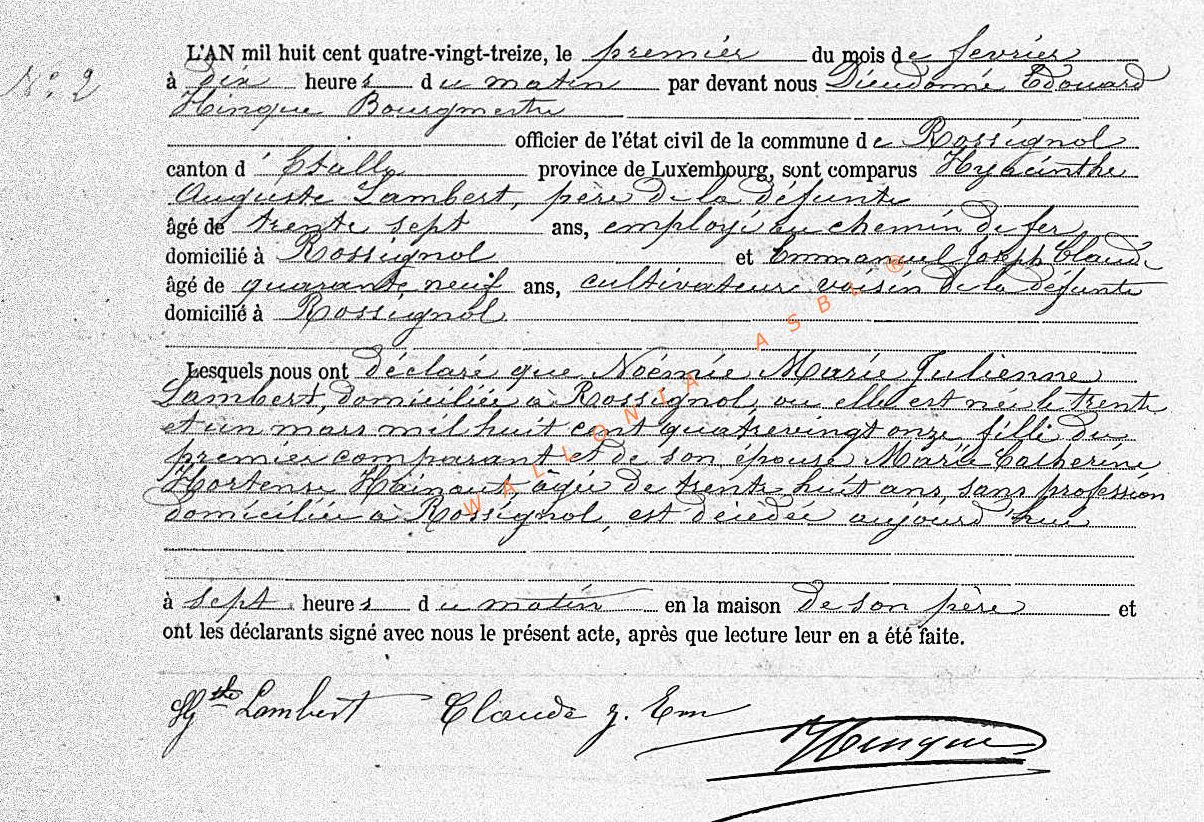 L'AN mil huit cent quatre-vingt-treize, le premier du mois de fevrier
N° 2
à dix heures du matin par devant nous Dieudonné Edouard
Hinque Bourgmestre
officier de l'état civil de la commune de Rossignol
canton d'Etalle province de Luxembourg, sont comparus Hyacinthe
Auguste Lambert, père de la défunte
âgé de trente sept ans, employé au chemin de fer
domicilié à Rossignol et Emmanuel Joseph Claude
âgé de quarante neuf ans, cultivateur voisin de la défunte
domicilié à Rossignol
Lesquels nous ont déclaré que Noémie Marie Julienne
Lambert, domiciliée à Rossignol, ou elle est né le trente
et un mars mil huit cent quatrevingt onze fille du
premier comparant et de son épouse Marie Catherine
Hortense Hainaut, agée de trente huit ans, sans profession
domiciliée à Rossignol, est décédée aujourd'hui
à sept heures du matin en la maison de son père et
ont les déclarants signé avec nous le présent acte, après que lecture leur en a été faite.
Hy.the Lambert Claude J. Em
Hinque
WALLONIA ASBL ®